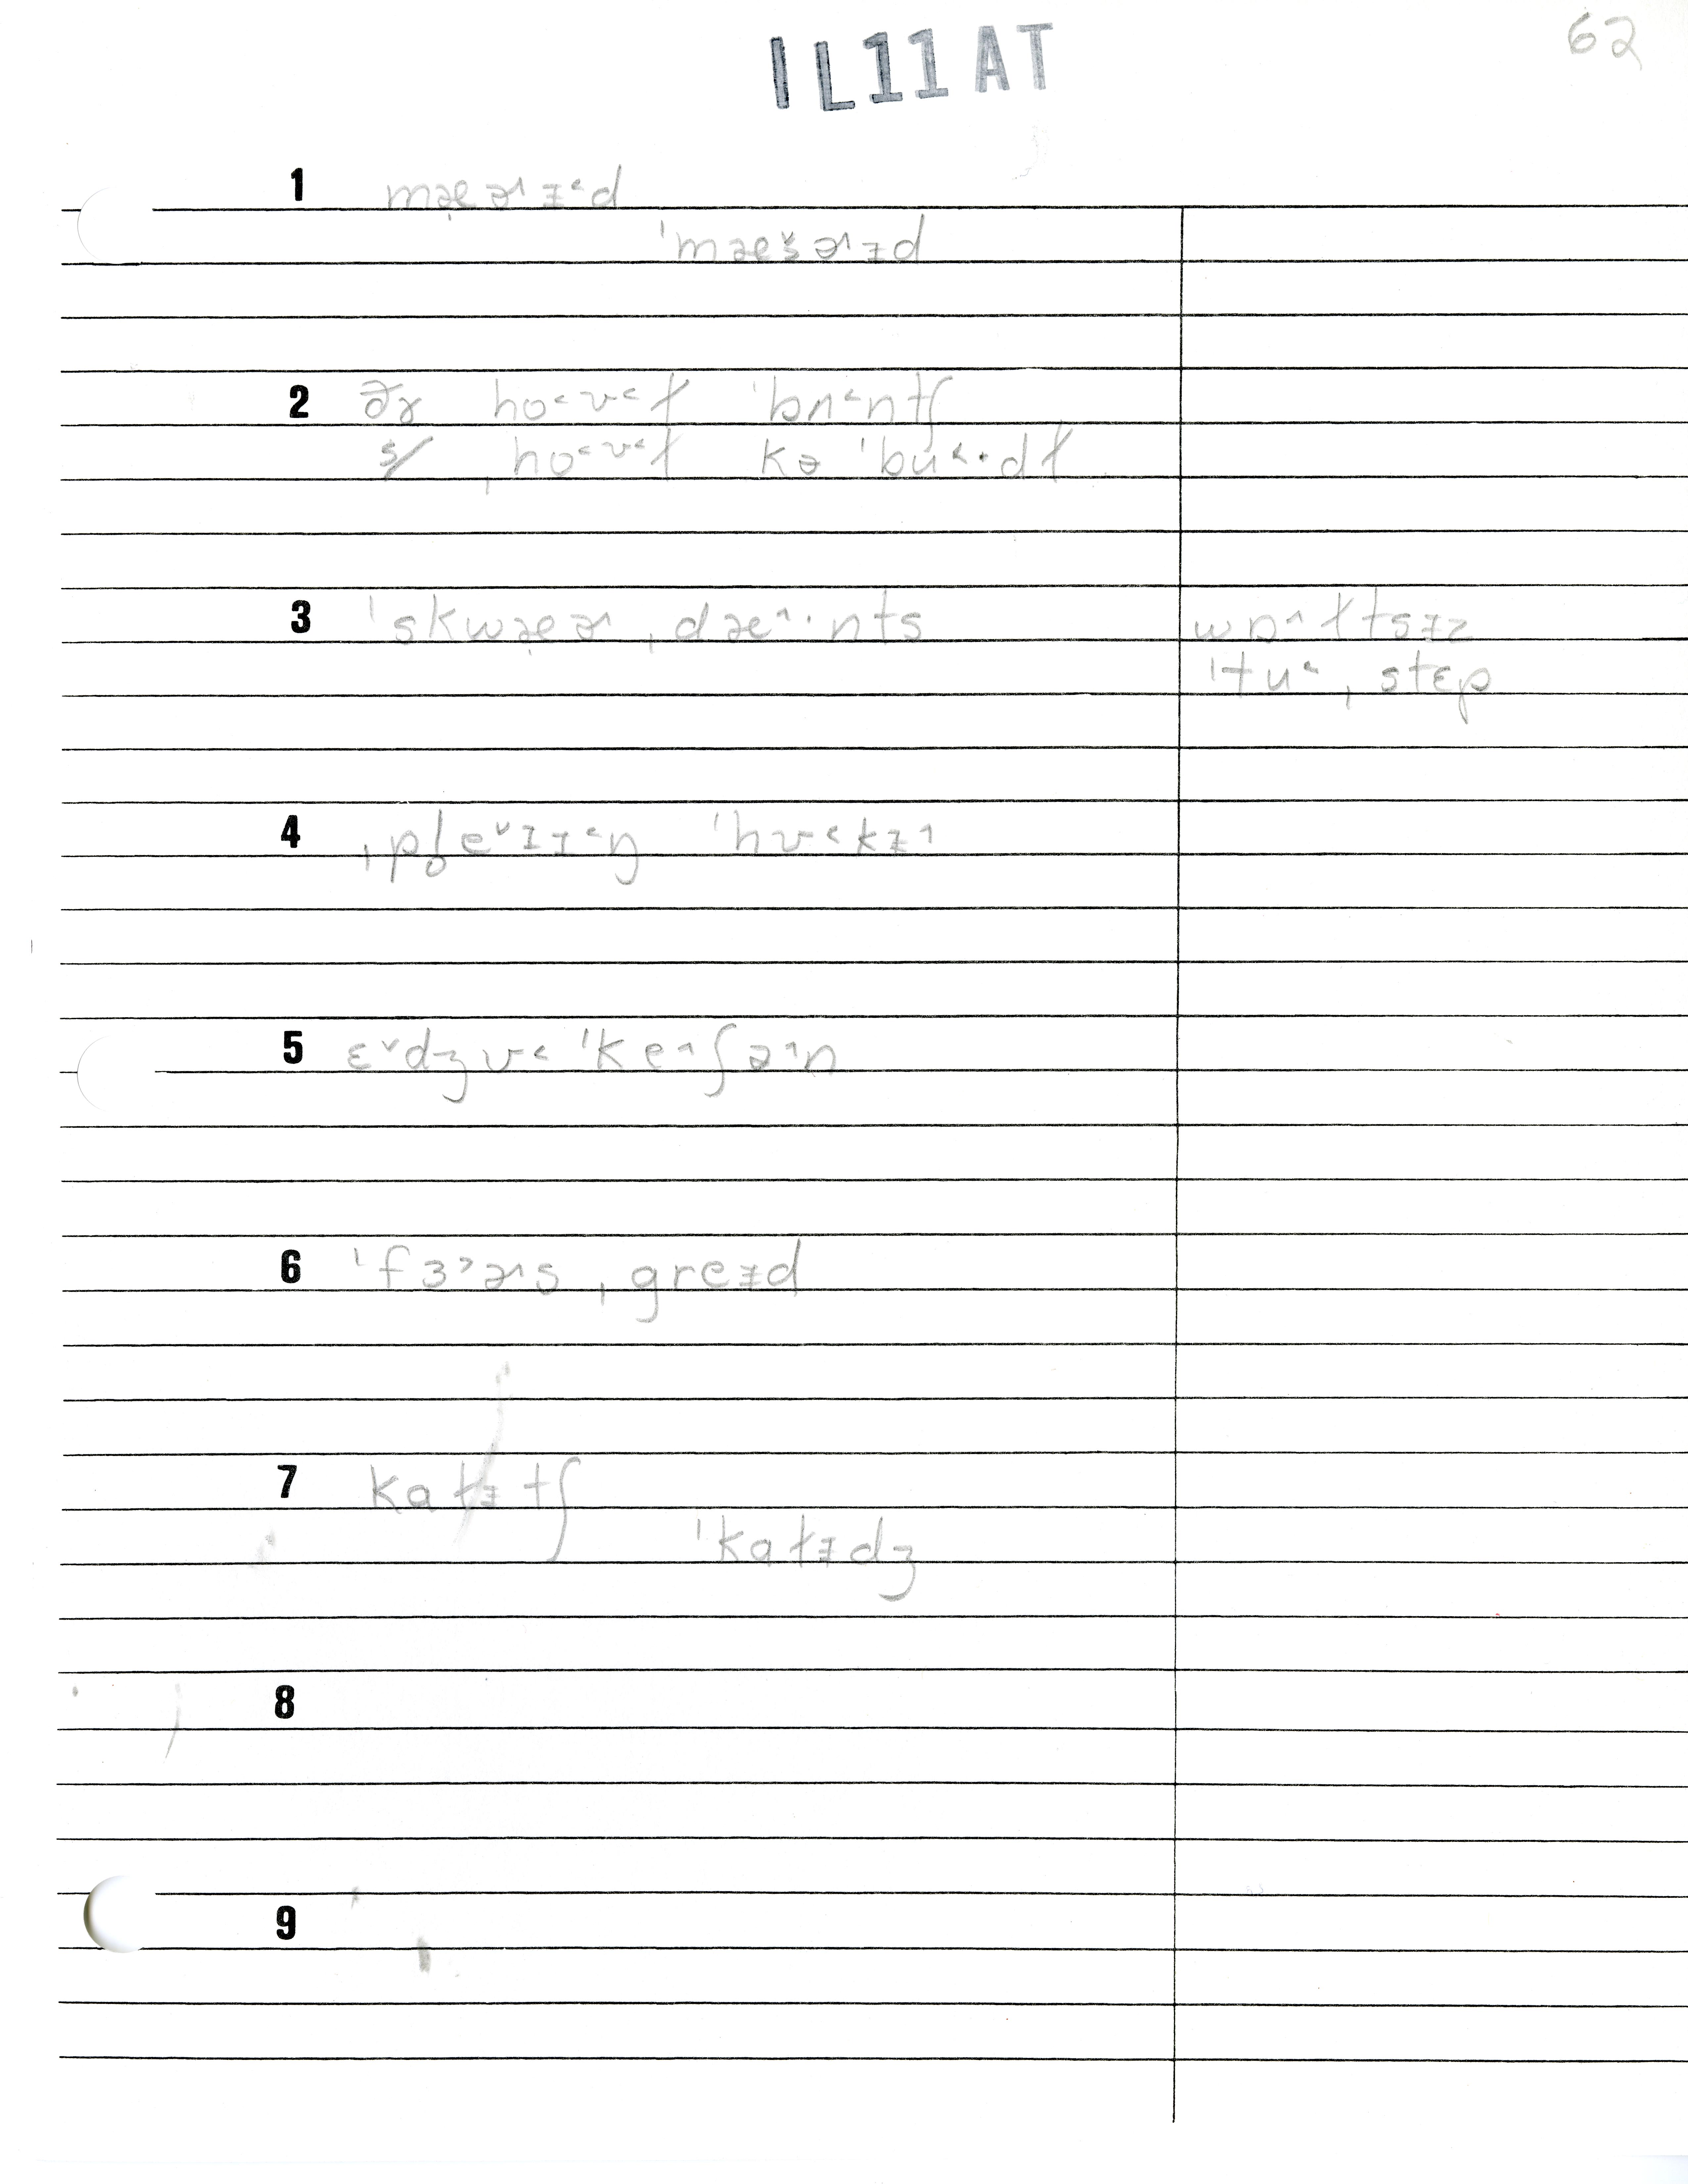 62
IL11AT
1 mæ̞ɚᵻ˂d
ˈmæɛ̆ɚᵻd
2 ðɤ ho˂ʊ˂ɫ ˈbʌ˂ntʃ
s/ ˌho˂ʊ˂ɫ kə ˈbu˂·dɫ
3 ˈskwæ̞ɚ ˌdæ˄·nts wɒ˄ɫtsᵻz
ˈtu˂ ˌstɛp
4 ˌpl̥e˅ɪɪ˂ŋ ˈhʊ˂kᵻ˄
5 ɛ˅dʒʊ˂ ˈke˄ʃə˄n
6 ˈfɜ˃ɚs ˌgreᵻd
7 kaɫᵻtʃ
ˈkaɫᵻdʒ
8
9